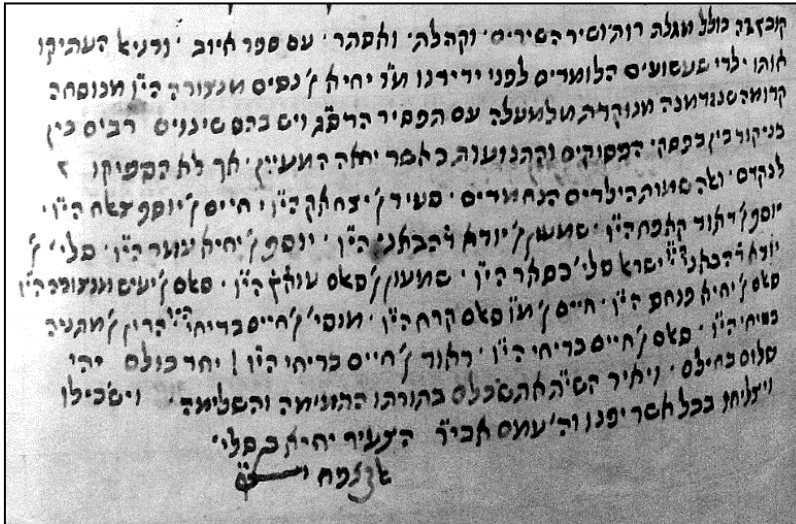 קובץ זה כולל מגלת רות ושיר השירים. וקהלת. ואסתר. עם ספר איוב. ודניא העתיקו
אותו ילדי שעשועים הלומדים לפני ידידנו מ"ו יחיא ן' נסים מנצורה הי"ו מנוסחה
קדומה שנגדמנה מנוקדת מלמעלה עם תפסיר הרס"ג ויש בהם שינויים רבים בין
בניקוד בין בפסק הפסוקים והתנועות כאשר יחזה המעיין. אך לא הספיקו
לנקדם. ואה שמות הילדים הנחמדים. סעיד ן' יצחאק הי"ו. חיים ן' יוסף צאח הי"ו.
יוסף ן' דאוד קאפח הי"ו. שמעון ן' יודא דהבאני הי"ו. יוסף ן' יחיא עומר הי"ו. סלי' ן'
יודא דהבאני הי"ו ישרא סלי' כסאר הי"ו. שמעון ן' סאלם עואץ הי"ו. סאלם ן' יעיש מנצורה הי"ו
סאלם ן' יחיא פנחס הי"ו. חיים ן' מ"ו סאלם קרח הי"ו. מוסי' ן' חיים בדיחי הי"ו הרון ן' מתניה
בדיחי הי"ו. סאלם ן' חיים בדיחי הי"ו. דאוד ן' חיים בדיחי הי"ו יחד כולם יהי
שלום בחילם. ויאיר השי"ת את שכלם בתורתו התמימה והשלימה. וישכילו
ויצליחו בכל אשר יפנו וה' עמם אכי"ר הצעיר יחיא בן סלי'